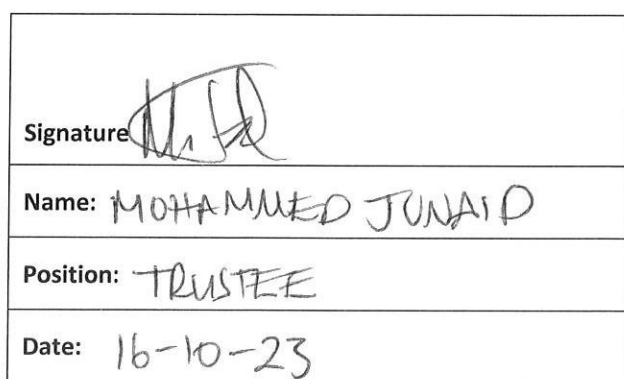 Signature
Name: MOHAMMED JUNAID
Position: TRUSTEE
Date: 16-10-23